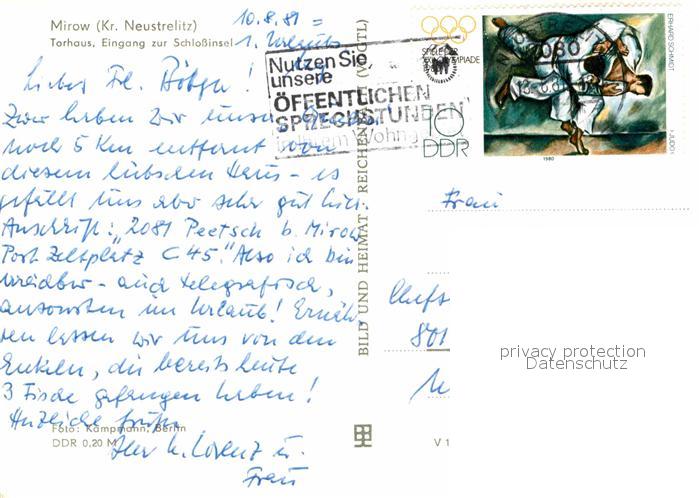 Mirow (Kr. Neustrelitz)
Torhaus, Eingang zur Schloßinsel
10.8.81 =
1. Urlaub
Liebes Frl.
Zwar haben wir unser
noch 5 Km entfernt von
diesem hübschen Haus - es
gefällt uns aber sehr gut hier.
Anschrift: "2081 Peetsch b. Mirow
Post Zeltplatz C 45." Also ich bin
erreichbar - auch telegrafisch,
ansonsten im Urlaub! Ernäh-
ren lassen wir uns von den
Enkeln, die bereits heute
3 Fische gefangen haben!
Herzliche Grüße
Foto: Kämpmann, Berlin
DDR 0,20 M
Ihr Lorenz u.
Frau
BILD UND HEIMAT REICHENBACH (VOGTL)
V 1
Nutzen Sie
unsere
ÖFFENTLICHEN
SPRECHSTUNDEN
SPIELE DER
OLYMPIADE
1980
10
DDR
ERHARD SCHMIDT
JUDO
1980
Frau
801
privacy protection
Datenschutz